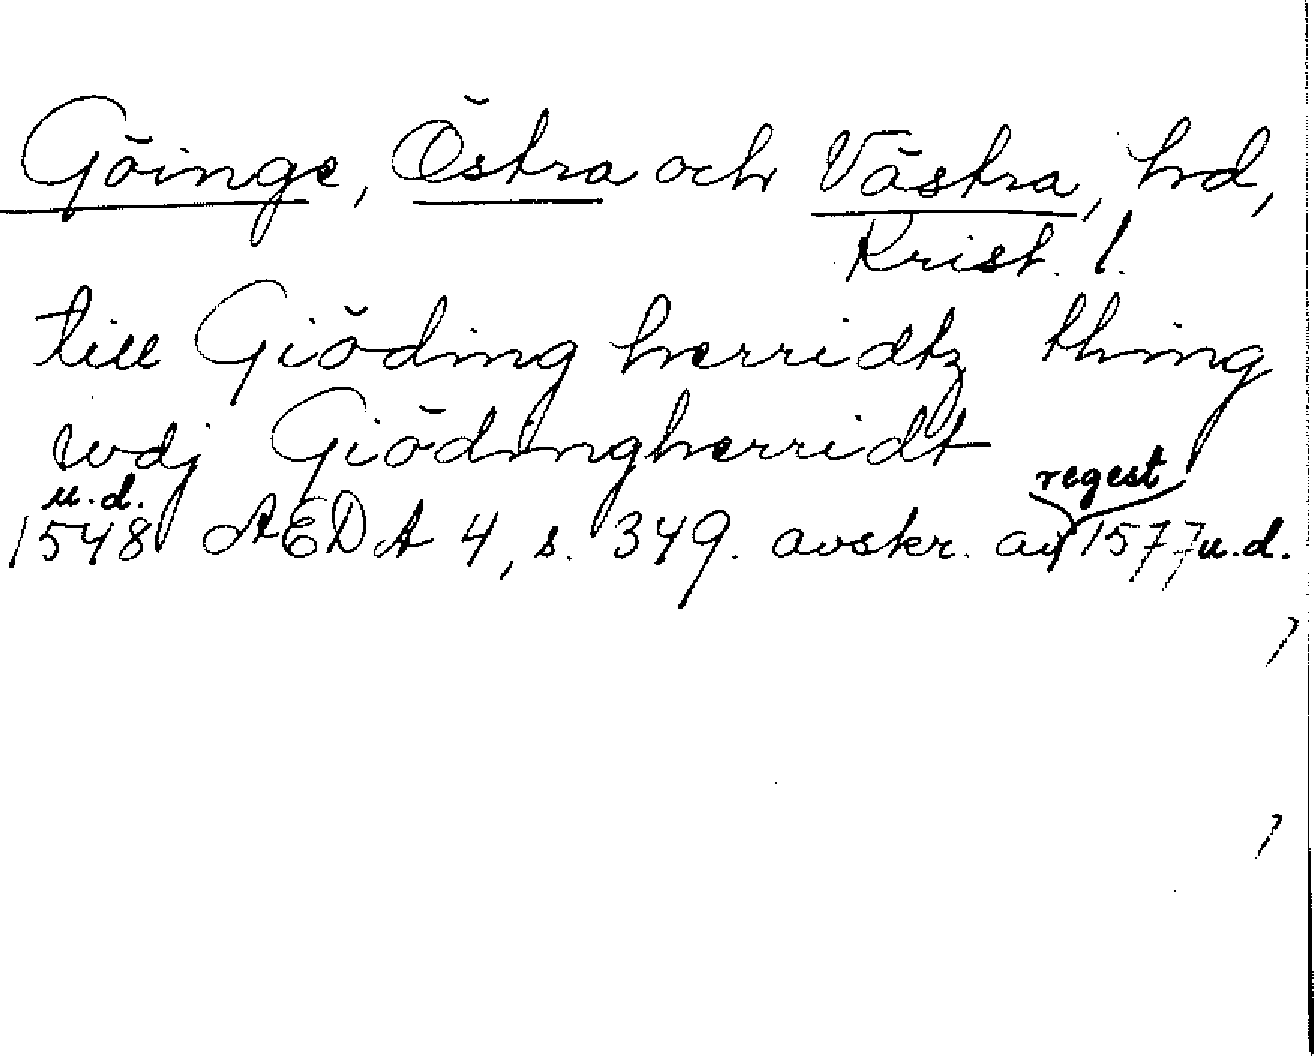 Göinge, Östra och Västra, hrd,
Krist. l.
till Giöding herridtz thing
wdj Giödingherridt
regest
u.d.
1548 AEDA 4, s. 349. avskr. av 1577 u.d.